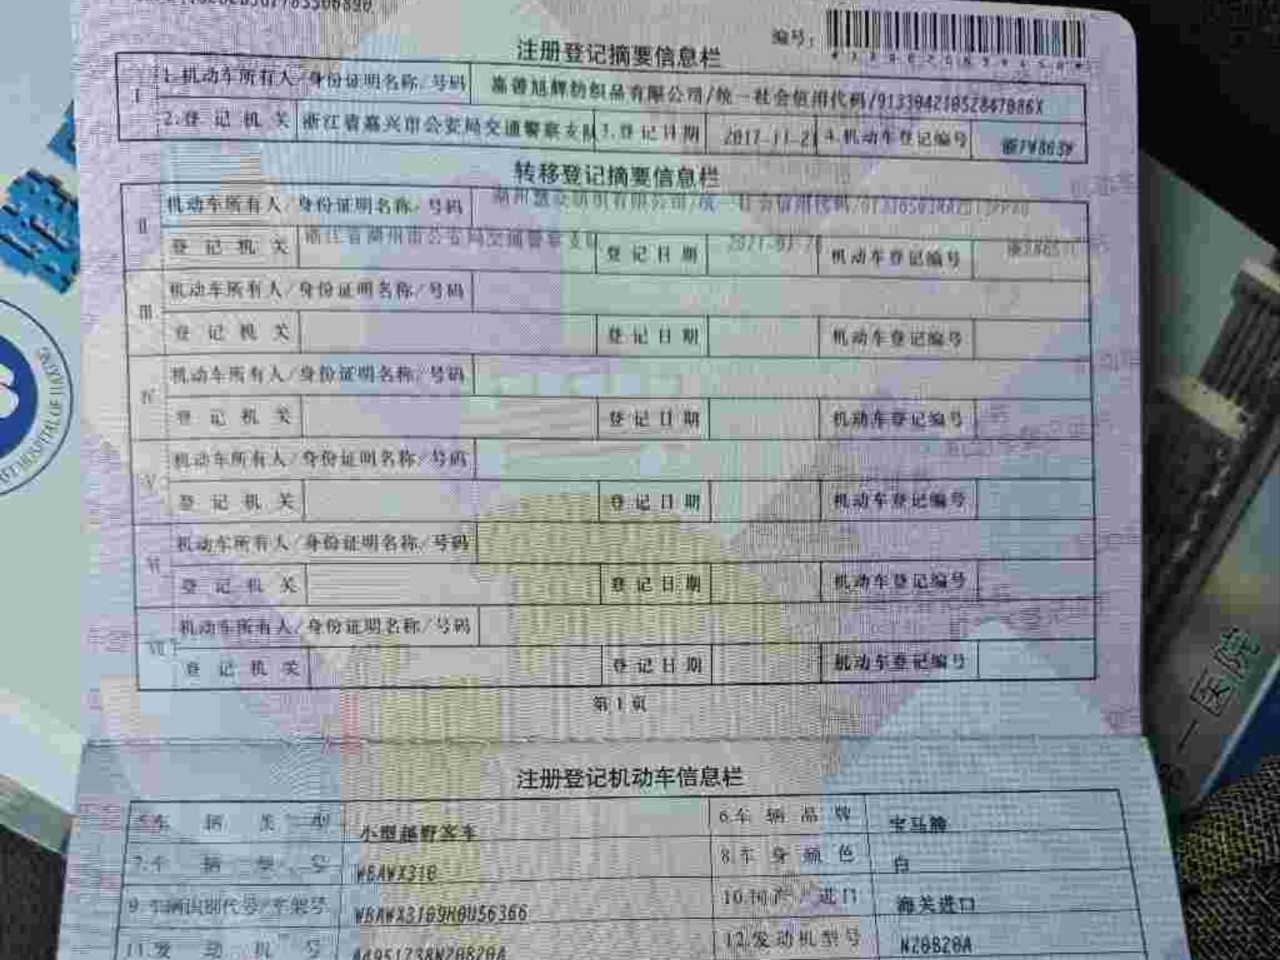 编号:
注册登记摘要信息栏
I 1.机动车所有人/身份证明名称/号码 嘉善旭辉纺织品有限公司/统一社会信用代码/91330421052847086X
2.登记机关 浙江省嘉兴市公安局交通警察支队 3.登记日期 2017-11-21 4.机动车登记编号
转移登记摘要信息栏
II 机动车所有人/身份证明名称/号码
登记机关 浙江省湖州市公安局交通警察支队 登记日期 机动车登记编号
III 机动车所有人/身份证明名称/号码
登记机关 登记日期 机动车登记编号
IV 机动车所有人/身份证明名称/号码
登记机关 登记日期 机动车登记编号
V 机动车所有人/身份证明名称/号码
登记机关 登记日期 机动车登记编号
VI 机动车所有人/身份证明名称/号码
登记机关 登记日期 机动车登记编号
VII 机动车所有人/身份证明名称/号码
登记机关 登记日期 机动车登记编号
第1页
注册登记机动车信息栏
5.车辆类型 小型越野客车 6.车辆品牌 宝马牌
7.车辆型号 WBAWX310 8.车身颜色 白
9.车辆识别代号/车架号 WBAWX3109H0U56366 10.国产/进口 海关进口
11.发动机号 12.发动机型号 N20B20A
一医院